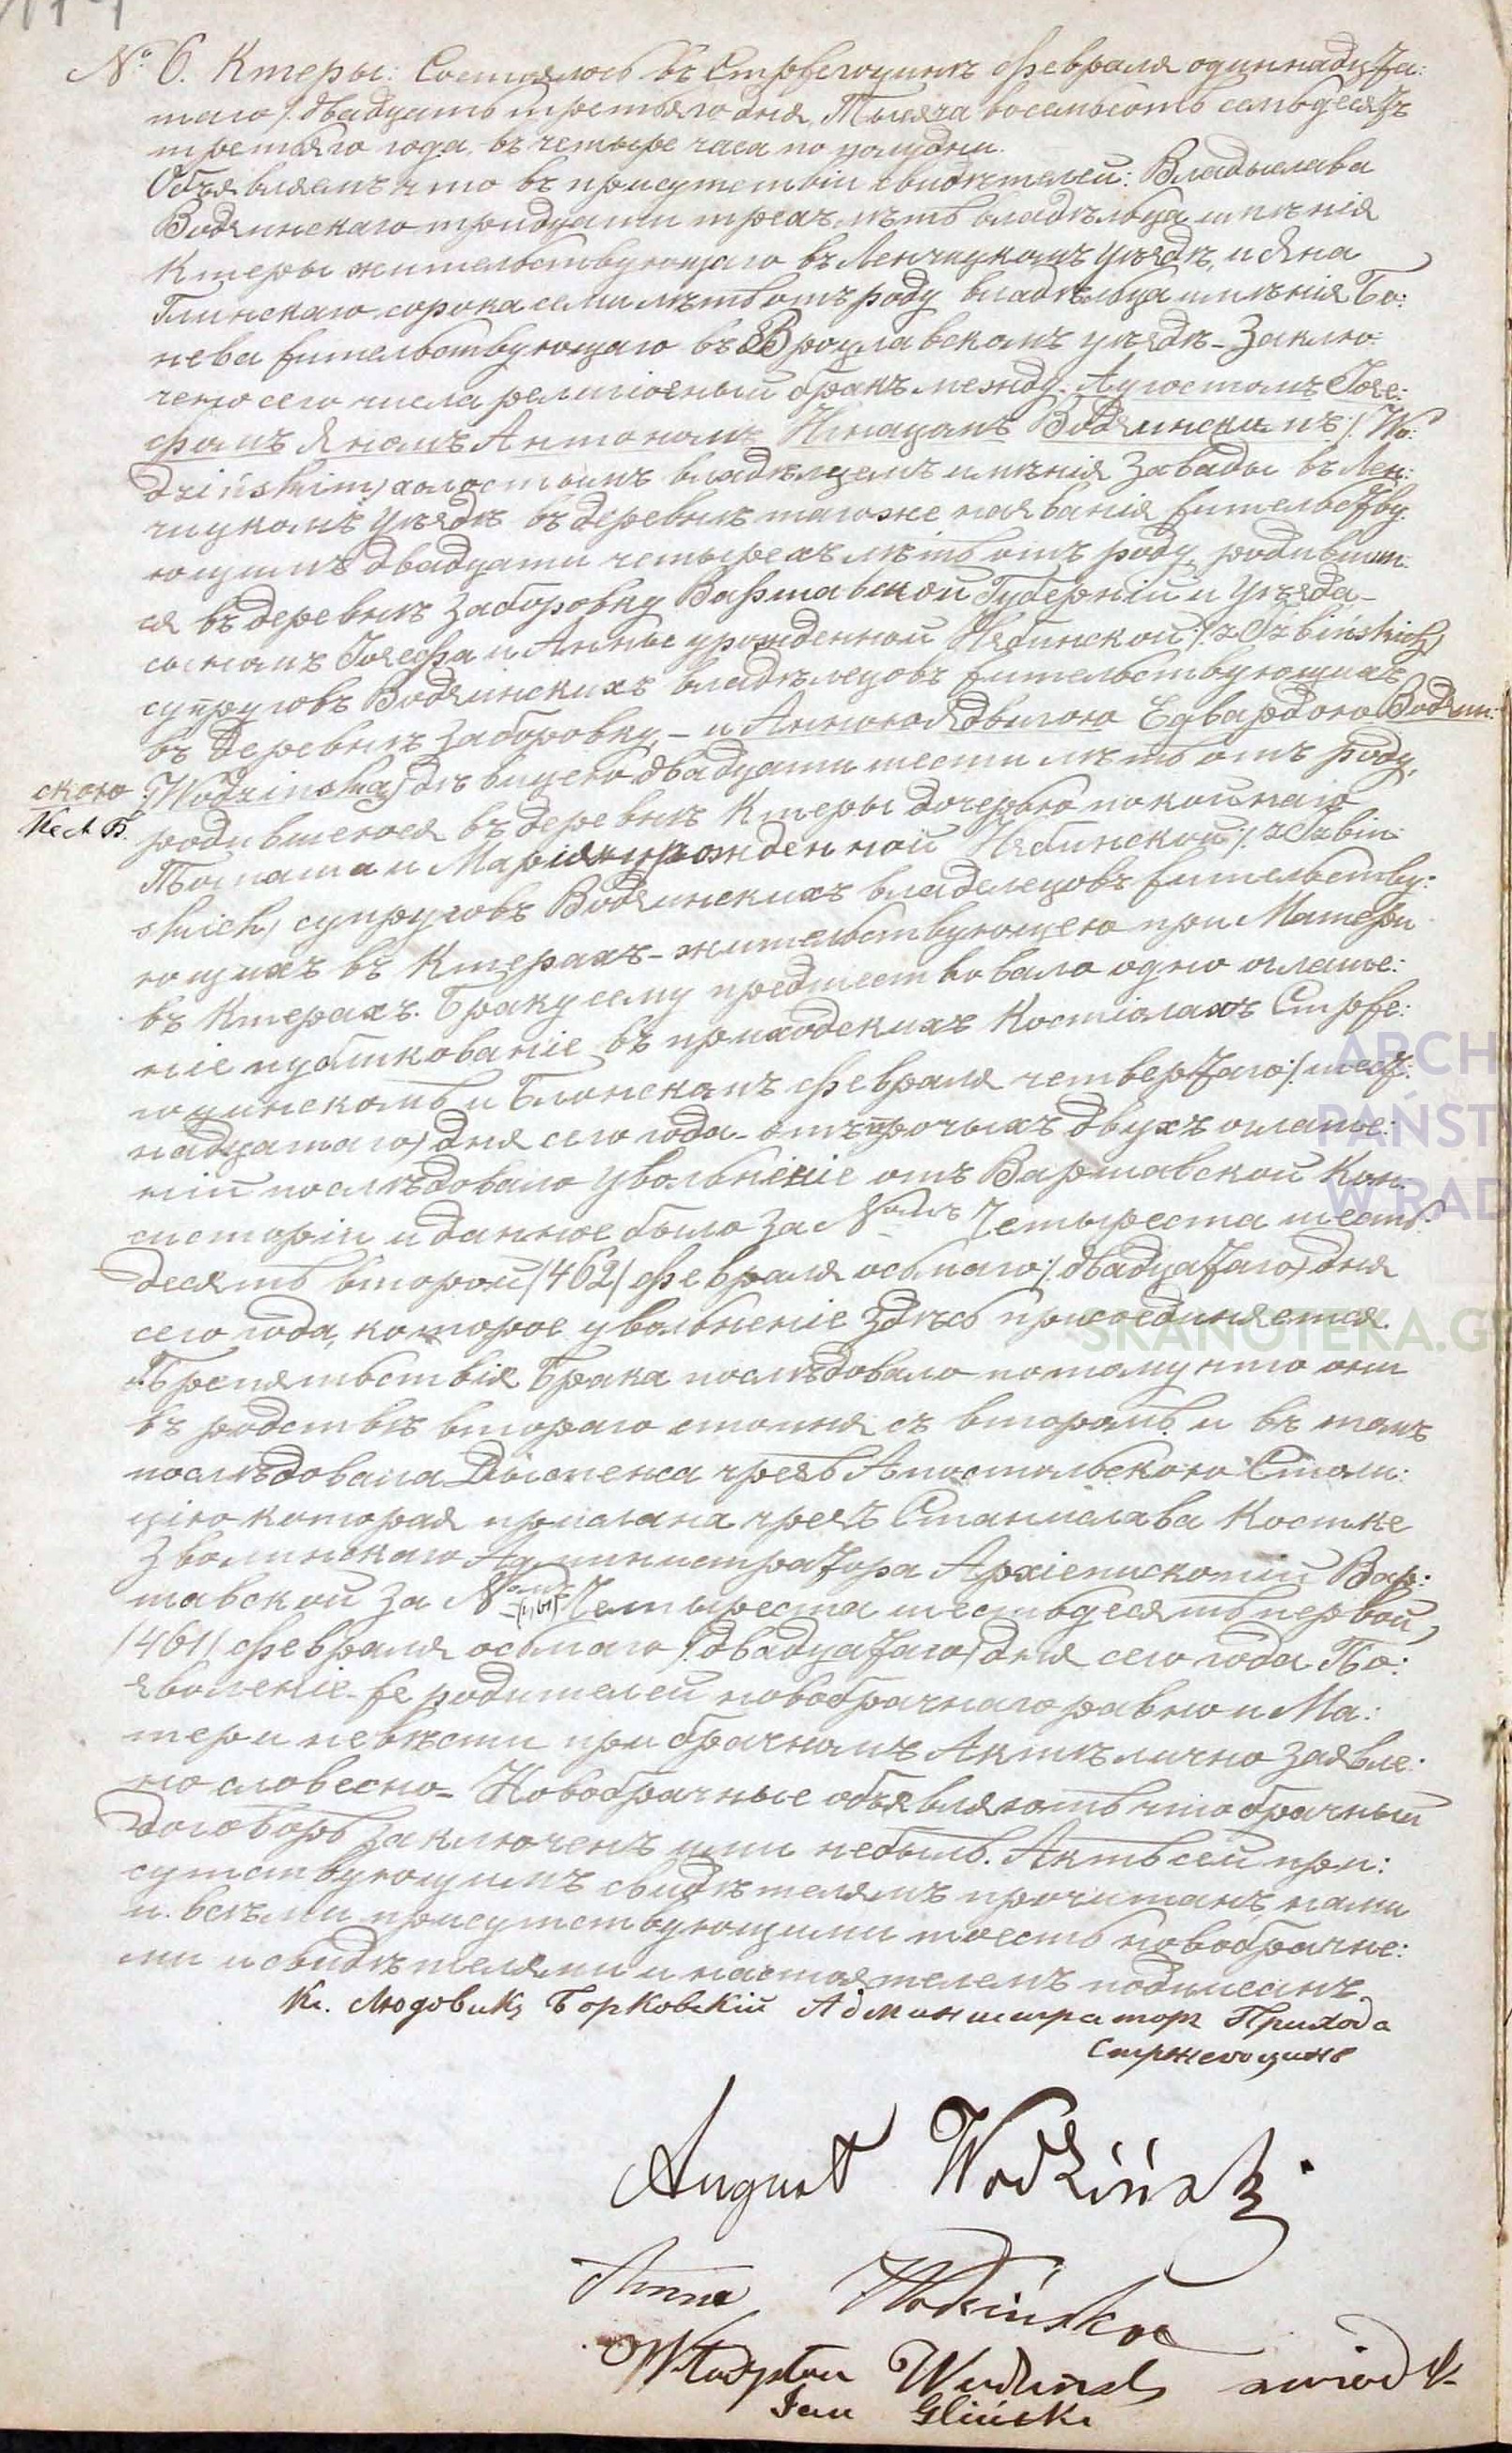 № 6. Ктеры: Состоялось въ Стржегоцинѣ Февраля одиннадца:
таго /: двадцать третьяго дня, Тысяча восемьсотъ семьдесятъ
третьяго года, въ четыре часа по полудни.
Объявляемъ что въ присутствіи свидѣтелей: Владыслава
Водзинскаго тридцати трехъ лѣтъ владѣльца имѣнія
Ктеры жительствующаго въ Ленчицкомъ уѣздѣ, и Яна
Глинскаго, сорока семи лѣтъ отъ роду владѣльца имѣнія Бо:
нева жительствующаго въ Вроцлавскомъ уѣздѣ - Заклю:
чено сего числа религіозный бракъ между: Аугостомъ Юзе:
фомъ Яномъ Антономъ Игнацомъ Водзинскимъ /: Wo:
dzińskim) холостымъ владѣлцемъ имѣнія Завады въ Лен:
чицкомъ уѣздѣ въ деревнѣ тагоже названія жительству:
ющимъ двадцати четырехъ лѣтъ отъ роду, родившим:
ся въ деревнѣ Заборовку Варшавской Губерніи и уѣзда -
сыномъ Юзефа и Анны урожденной Избинской /: z Izbińskich)
супруговъ Водзинскихъ владѣлецовъ жительствующихъ
въ деревнѣ Заборовку, - и Анною Ядвигою Едвардою Водзин:
скою /: Wodzińska) дѣвицею двадцати шести лѣтъ отъ роду,
Кс Л Б.
родившеюся въ деревнѣ Ктеры дочерью покойнаго
Томаша и Маріи урожденной Избинской /: z Izbiń:
skich) супруговъ Водзинскихъ владелецовъ жительству:
ющихъ въ Ктерахъ - жительствующею при Матери
въ Ктерахъ. Браку сему предшествовало одно оглаше:
ніе публикованіе въ приходскихъ Костіолахъ Стрже:
гоцинскомъ и Блонскомъ Февраля четвертаго /: шест:
надцатаго) дня сего года - отъ прочыхъ двухъ оглаше:
ній послѣдовало увольненіе отъ Варшавской Кон:
систоріи и данное было за №омъ Четыреста шесть:
десять второй /462/ Февраля осьмаго /: двадцатаго) дня
сего года, которое увольненіе здѣсь присоединяется.
Препятьствія Брака послѣдовало потому что они
въ родствѣ втораго стопня съ вторымъ. и въ томъ
послѣдовала Диспенса чрезъ Апостольскою Столи:
цію которая прислана чрезъ Станислава Костке
Зволинскаго Администратора Архіепископіи Вар:
шавской за №омъ Четыреста шестьдесять первой,
/461/ Февраля осьмаго /: двадцатаго) дня сего года По:
зволеніе же родителей новобрачнаго равно и Ма:
тери невѣсти при брачномъ Актѣ лично заявле:
но словесно - Новобрачные объявляютъ что брачный
договоръ заключенъ ими небылъ. Актъ сей при:
сутствующимъ свидѣтелямъ прочитанъ, нами
и. всѣми присутствующими тоесть новобрачне:
ми и свидѣтелями и настоятелемъ подписанъ.
Кс. Людовикъ Борковскій Администраторъ Прихода
Стржегоцинъ
August Wodzińsk
Anna Wodzińska
Władysław Wodzińsk świad k
Jan Gliński
ARCH
PAŃST
W RAD
SKANOTEKA.G